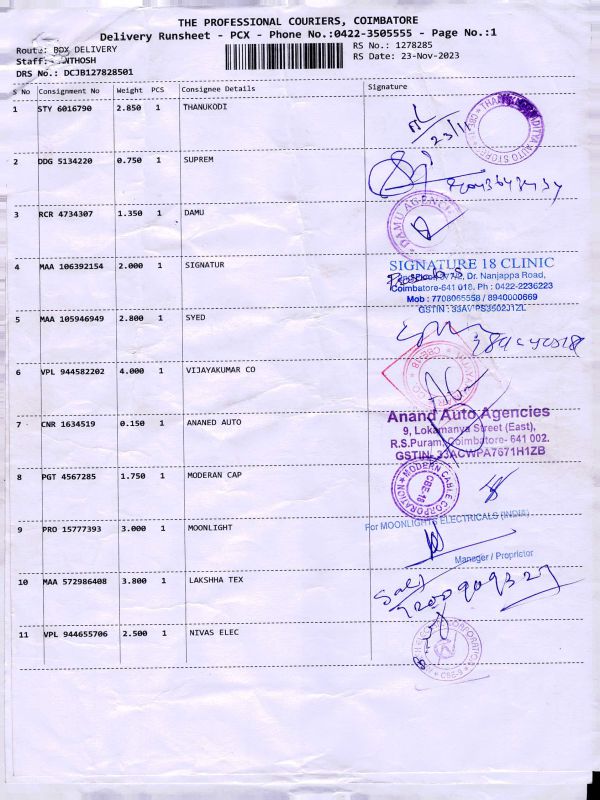 THE PROFESSIONAL COURIERS, COIMBATORE
Delivery Runsheet - PCX - Phone No.:0422-3505555 - Page No.:1
Route: BOX DELIVERY
RS No.: 1278285
Staff:
RS Date: 23-Nov-2023
DRS No.: DCJB127828501
S No Consignment No Weight PCS Consignee Details Signature
1 STY 6016790 2.850 1 THANUKODI
23/11
2 DDG 5134220 0.750 1 SUPREM
3 RCR 4734307 1.350 1 DAMU
DAMU AGENCY
4 MAA 106392154 2.000 1 SIGNATUR
SIGNATURE 18 CLINIC
Dr. Nanjappa Road,
Coimbatore-641 018. Ph : 0422-2236223
Mob : 7708065558 / 8940000669
GSTIN :
5 MAA 105946949 2.800 1 SYED
6 VPL 944582202 4.000 1 VIJAYAKUMAR CO
7 CNR 1634519 0.150 1 ANANED AUTO
Anand Auto Agencies
9, Lokamanya Street (East),
R.S.Puram, Coimbatore- 641 002.
GSTIN- 33ACWPA7671H1ZB
8 PGT 4567285 1.750 1 MODERAN CAP
MODERN CABLE CORPORATION
CBE-18
9 PRO 15777393 3.000 1 MOONLIGHT
For MOONLIGHTS ELECTRICALS (INDIA)
Manager / Proprietor
10 MAA 572986408 3.800 1 LAKSHHA TEX
11 VPL 944655706 2.500 1 NIVAS ELEC